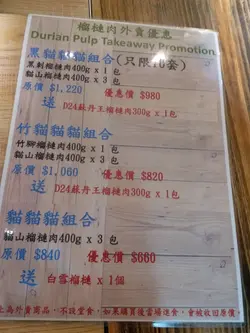 榴槤肉外賣優惠
Durian Pulp Takeaway Promotion
黑貓貓貓組合(只限10套)
黑刺榴槤肉400g x 1 包
貓山榴槤肉400g x 3 包
原價 $1,220 優惠價 $980
送 D24蘇丹王榴槤肉300g x 1包
竹貓貓貓組合
竹腳榴槤肉400g x 1 包
貓山榴槤肉400g x 3 包
原價 $1,060 優惠價 $820
送 D24蘇丹王榴槤肉300g x 1包
貓貓貓組合
貓山榴槤肉400g x 3 包
原價 $840 優惠價 $660
送 白雪榴槤 x 1個
為外賣商品，不設堂食，如果購買後當場進食，會被收回原價